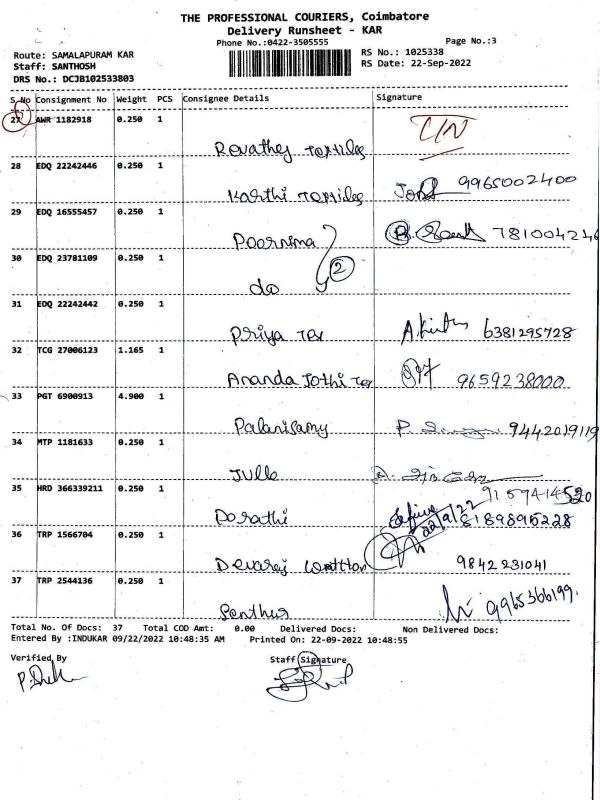 THE PROFESSIONAL COURIERS, Coimbatore
Delivery Runsheet - KAR
Phone No.:0422-3505555
Page No.:3
Route: SAMALAPURAM KAR
RS No.: 1025338
Staff: SANTHOSH
RS Date: 22-Sep-2022
DRS No.: DCJB102533803
S.No Consignment No Weight PCS Consignee Details Signature
27 AWR 1182918 0.250 1
Revathy Textiles
28 EDQ 22242446 0.250 1
Karthi Textiles 9965002400
29 EDQ 16555457 0.250 1
Poornima 781004246
30 EDQ 23781109 0.250 1
do 2
31 EDQ 22242442 0.250 1
Priya Tex 6381295728
32 TCG 27006123 1.165 1
Ananda Jothi Tex 9659238000
33 PGT 6900913 4.900 1
Palanisamy 9442019119
34 MTP 1181633 0.250 1
35 HRD 366339211 0.250 1
9157414520
Dorathi 22/9/22 8189895228
36 TRP 1566704 0.250 1
Devaraj 9842231041
37 TRP 2544136 0.250 1
Senthur 9965366199
Total No. Of Docs: 37 Total COD Amt: 0.00 Delivered Docs: Non Delivered Docs:
Entered By :INDUKAR 09/22/2022 10:48:35 AM Printed On: 22-09-2022 10:48:55
Verified By
Staff Signature